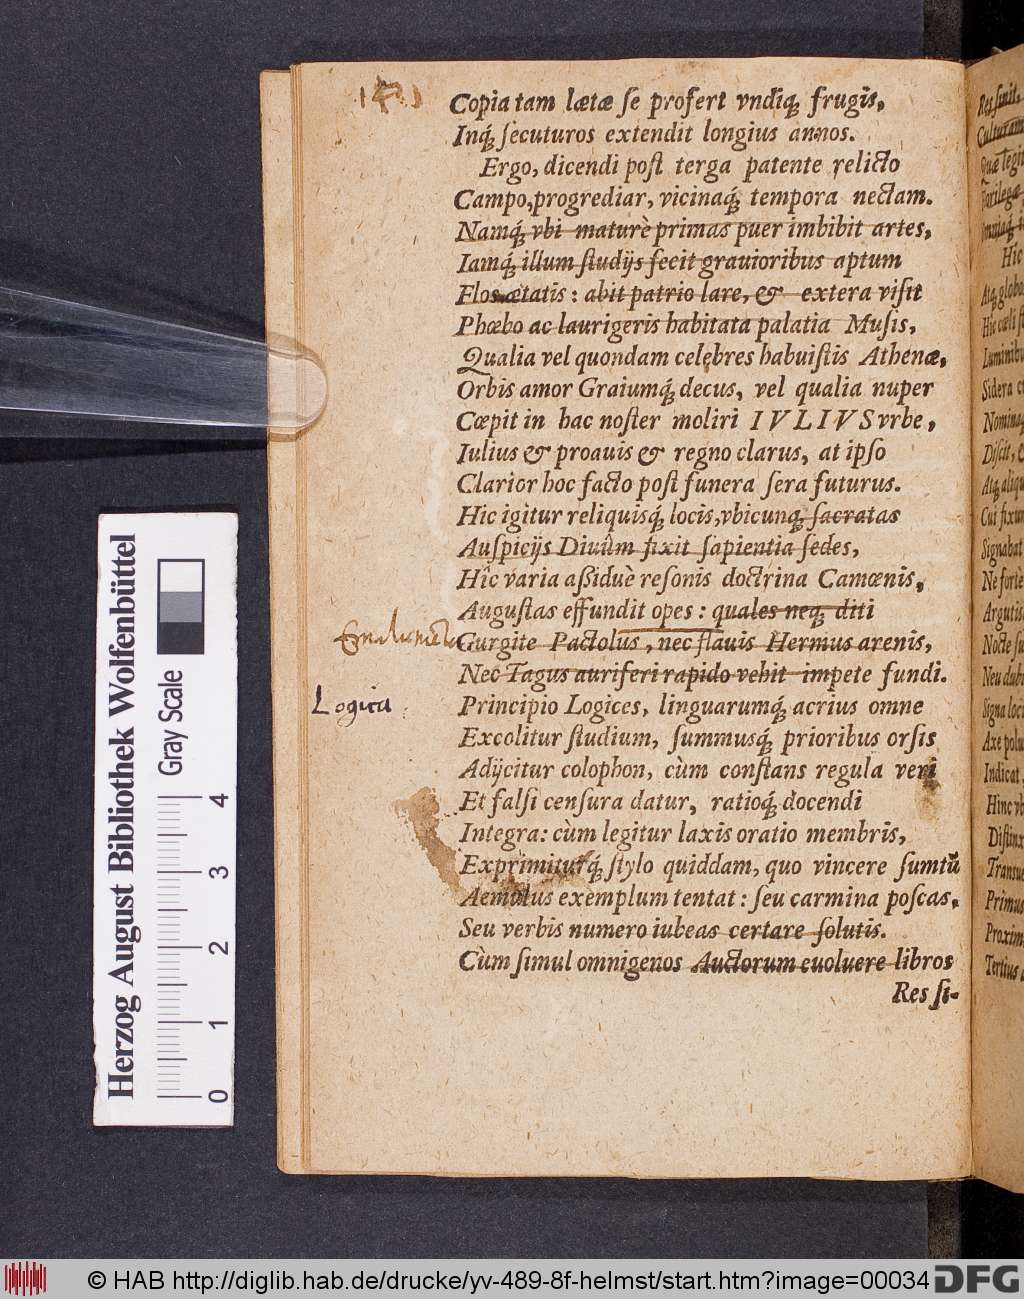 Copia tam lætæ ſe profert vndiq́; frugis,
Inq́; ſecuturos extendit longius annos.
Ergo, dicendi poſt terga patente relicto
Campo, progrediar, vicinaq́; tempora nectam.
Namq́; vbi maturè primas puer imbibit artes,
Iamq́; illum ſtudijs fecit grauioribus aptum
Flos ætatis: abit patrio lare, & extera viſit
Phœbo ac laurigeris habitata palatia Muſis,
Qualia vel quondam celebres habuiſtis Athenæ,
Orbis amor Graiumq́; decus, vel qualia nuper
Cœpit in hac noſter moliri IVLIVS vrbe,
Iulius & proauis & regno clarus, at ipſo
Clarior hoc facto poſt funera ſera futurus.
Hic igitur reliquisq́; locis, vbicunq́; ſacratas
Auſpicijs Diuûm fixit ſapientia ſedes,
Hîc varia aßiduè reſonis doctrina Camœnis,
Auguſtas effundit opes: quales neq́; diti
Gurgite Pactolus, nec flauis Hermus arenis,
Nec Tagus auriferi rapido vehit impete fundi.
Logica
Principio Logices, linguarumq́; acrius omne
Excolitur ſtudium, ſummusq́; prioribus orſis
Adijcitur colophon, cùm conſtans regula veri
Et falſi cenſura datur, ratioq́; docendi
Integra: cùm legitur laxis oratio membris,
Exprimiturq́; ſtylo quiddam, quo vincere ſumtũ
Aemulus exemplum tentat: ſeu carmina poſcas,
Seu verbis numero iubeas certare ſolutis.
Cùm ſimul omnigenos Auctorum euoluere libros
Res ſi-
Herzog August Bibliothek Wolfenbüttel
Gray Scale
0 1 2 3 4
© HAB http://diglib.hab.de/drucke/yv-489-8f-helmst/start.htm?image=00034
DFG